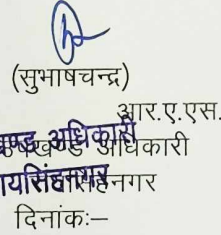 (सुभाषचन्द्र)
आर.ए.एस.
उपखण्ड अधिकारी
रायसिंहनगर
दिनांक:–